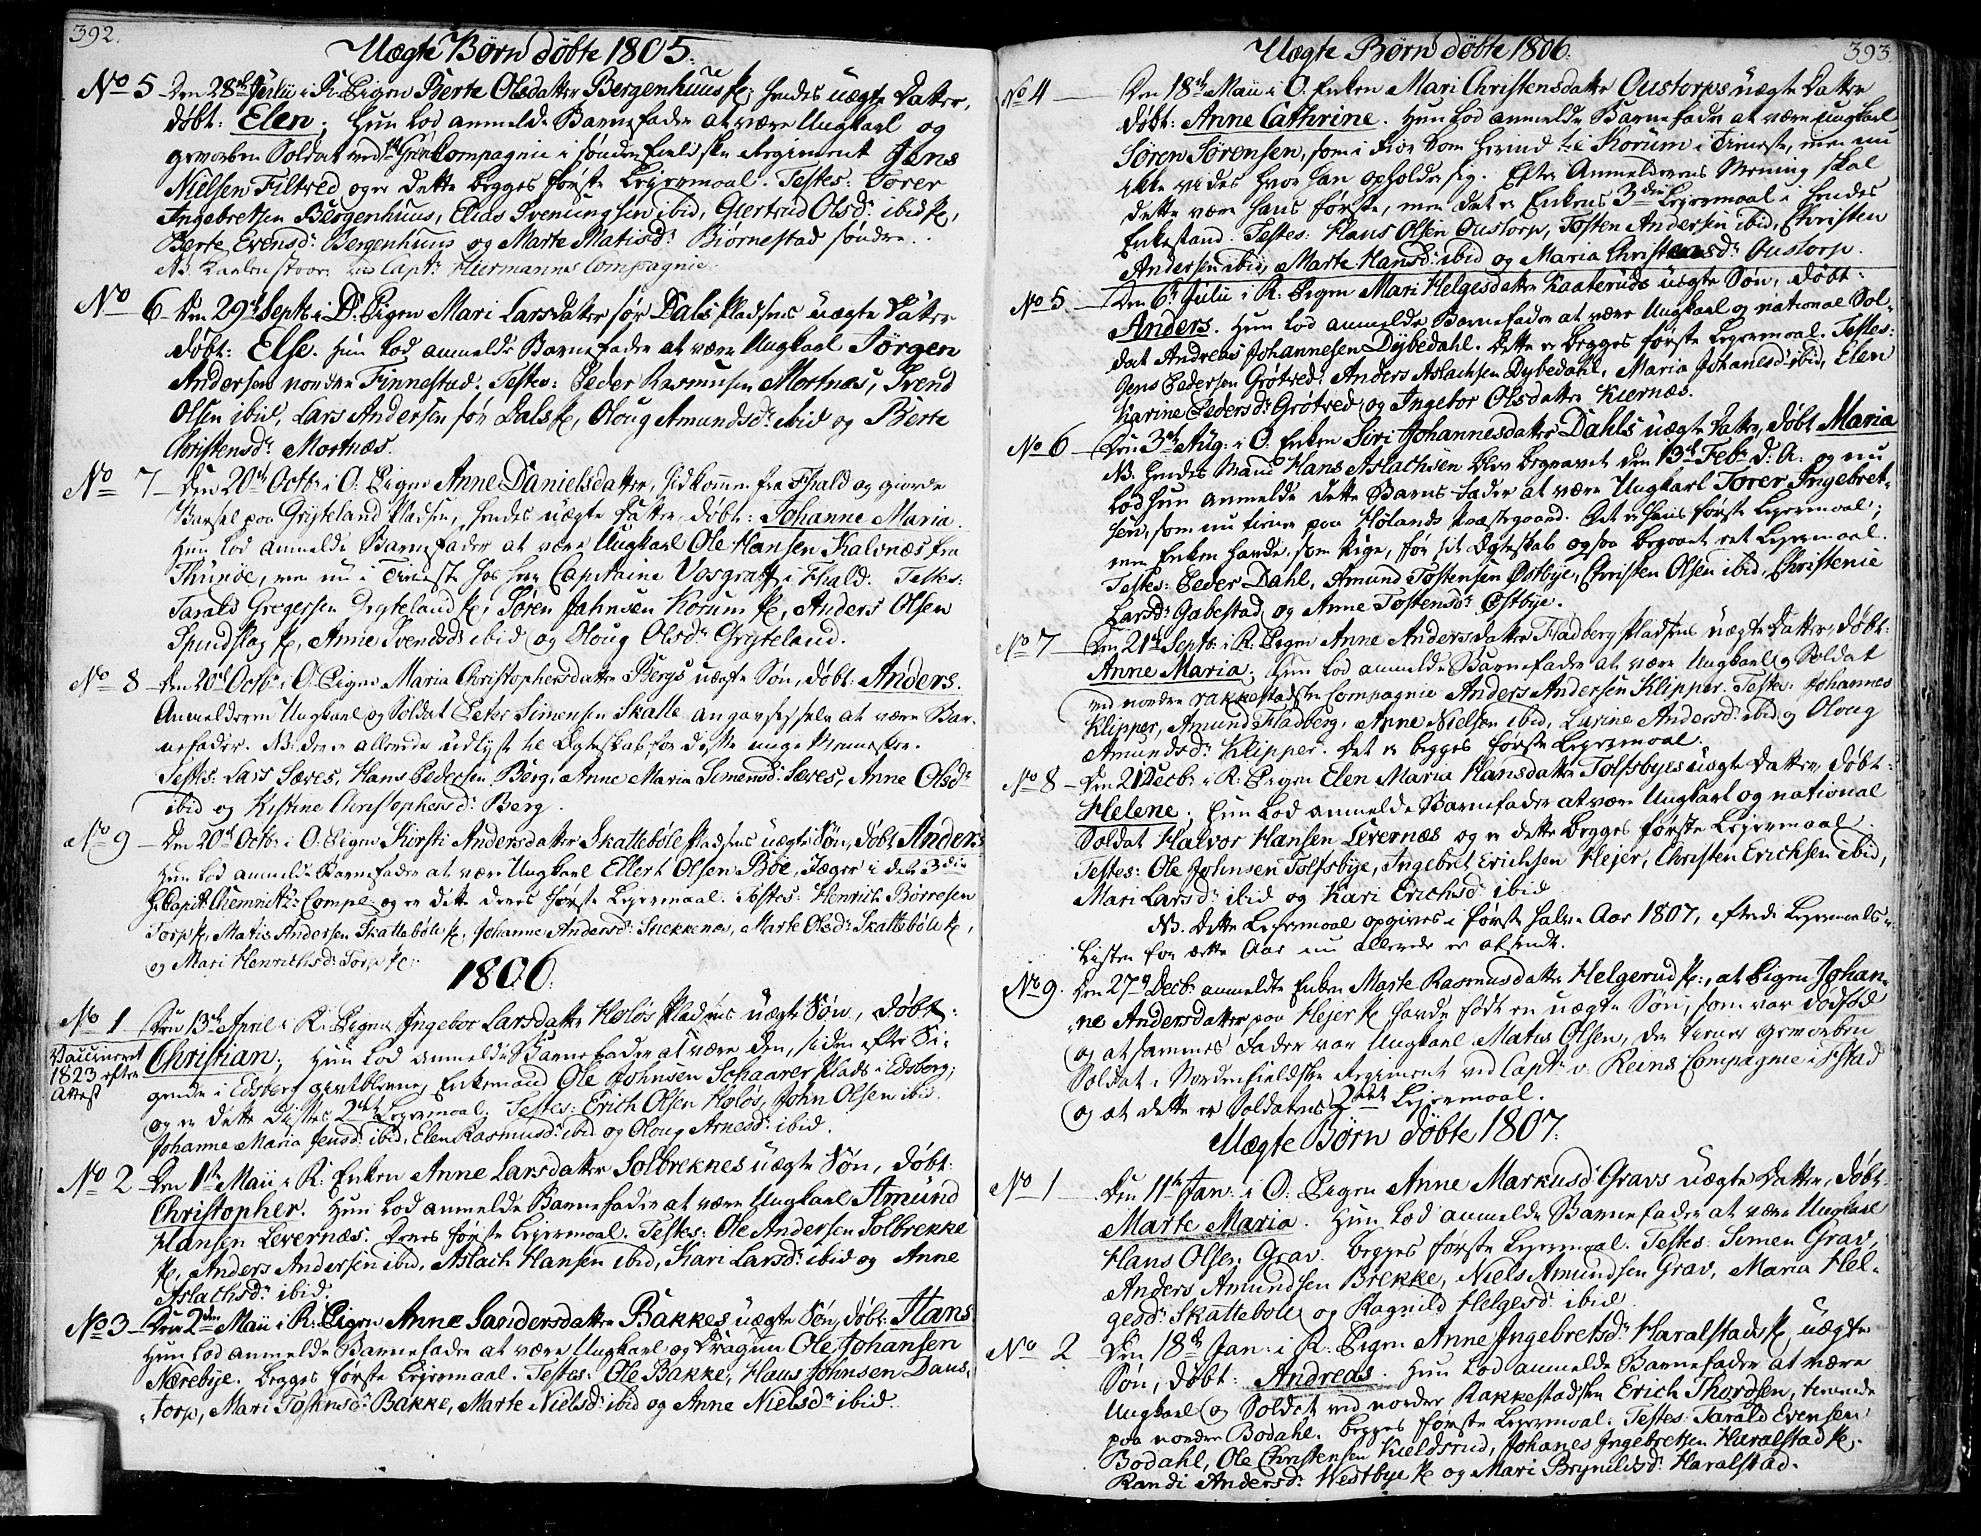 392.
Uægte Børn døbte 1805.
No 5 Den 28de Julii i R. Pigen Berte Olsdatter Bergenhuus Pl. hendes uægte Datter,
døbt: Elen; hun lod anmelde Barnefader at være Ungkarl og
geworben Soldat ved Compagnie i søndenfieldske Regiment Jens
Nielsen Filtved og er dette begges første Leiermaal. Testes: Torer
Ingebretsen Bergenhuus, Elias Svenungsen ibid, Giertrud Olsd: ibid Pl,
Berte Evensd: Bergenhuus og Marte Matisd: Biørnestad søndre.
NB. Karlen staaer ved Capt: Hiermanns Compagnie.
No 6 Den 29de Septb: i D. Pigen Mari Larsdatter sør Dals Pladsens uægte Datter
døbt: Else. Hun lod anmelde Barnefader at være Ungkarl Jørgen
Andersen nordre Finnestad. Testes: Peder Rasmusen Mortnæs, Svend
Olsen ibid, Lars Andersen sør Dals Pl, Oloug Amundsd: ibid og Berte
Christensd: Mortnæs.
No 7 Den 20de Octb: i O. Pigen Anne Danielsdatter, hidkommen fra Fhald og giorde
Barsel paa Gryteland Pladsen, hendes uægte Datter, døbt: Johanne Maria.
Hun lod anmelde Barnefader at være Ungkarl Ole Hansen Kalvnæs fra
Thunøe, men nu i Tieneste hos Herr Capitaine Vosgraff i Fhald. Testes:
Tarald Gregersen Gryteland Pl, Søren Jahnsen Korum Pl, Anders Olsen
Spundskog Pl, Anne Svendsd: ibid og Oloug Olsd: Gryteland.
No 8 Den 20de Octb: i O. Pigen Maria Christophersdatter Bergs uægte Søn, døbt: Anders.
Anmelderen Ungkarl og Soldat Peter Simensen Skalle angav sig selv at være Bar-
nefader. NB: de ere allerede udlyste til Ægteskab for disse unge Mennesker.
Testes: Lars Sæves, Hans Pedersen Berg, Anne Maria Simensd: Sæves, Anne Olsd:
ibid og Kistine Christophersd: Berg.
No 9 Den 20de Octb: i O. Pigen Kirsti Andersdatter Skattebøle Pladsens uægte Søn, døbt Anders
Hun lod anmelde Barnefader at være Ungkarl Ellert Olsen Bøe, Jæger i det 3die
Capit: Chemnitz: Comp: og er dette deres første Leiermaal. Testes: Henrich Børresen
Torp Pl, Matis Andersen Skattebøle Pl, Johanne Andersd: Snekkenæs, Marte Olsd: Skattebøle Pl,
og Mari Henrichsd: Torp Pl.
1806.
No 1 Den 13de April i R. Pigen Ingebor Larsdatter Høløs Pladsens uægte Søn, døbt:
Vaccineret 1823 efter Attest
Christian; Hun lod anmelde Barnefader at være den, siden efter Si-
gende i Edsberg giftblevne, Enkemand Ole Johnsen Schaarer Plads i Edsberg;
og er dette Disses 2det Leiermaal. Testes: Erich Olsen Høløs, John Olsen ibid.
Johanne Maria Jensd: ibid, Elen Rasmusd: ibid og Oloug Arnesd: ibid.
No 2 Den 1ste Maii i R. Enken Anne Larsdatter Solbreknes uægte Søn, døbt:
Christopher. Hun lod anmelde Barnefader at være Ungkarl Amund
Hansen Levernæs. Deres første Leiermaal. Testes: Ole Andersen Solbrekke
Pl, Anders Andersen ibid, Aslach Hansen ibid, Kari Larsd: ibid og Anne
Aslachsd: ibid.
No 3 Den 2den Maii i R. Pigen Anne Sandersdatter Bakkes uægte Søn, døbt: Hans
Hun lod anmelde Barnefader at være Ungkarl og Dragun Ole Johansen
Nærebye. begges første Leiermaal. Testes: Ole Bakke, Hans Johnsen Daus-
torp, Mari Tostensd: Bakke, Marte Nielsd: ibid og Anne Nielsd: ibid.
Uægte Børn døbte 1806.
393.
No 4 Den 18de Maii i O. Enken Mari Christensdatter Oustorps uægte Datter
døbt: Anne Cathrine. Hun lod anmelde Barnefader at være Ungkarl
Søren Sørensen, som i Fior kom herind til Korum i Tieneste, men nu
ikke vides hvor han opholder sig. Efter Anmelderens Mening skal
dette være hans første, men det er Enkens 3die Leiermaal i hendes
Enkestand. Testes: Hans Olsen Oustorp, Tosten Andersen ibid, Christen
Andersen ibid, Marte Hansd: ibid og Maria Christensd: Oustorp.
No 5 Den 6te Julii i R. Pigen Mari Helgesdatter Kaateruds uægte Søn, døbt:
Anders. Hun lod anmelde Barnefader at være Ungkarl og national Sol-
dat Andreas Johannesen Dybedahl. Dette er begges første Leiermaal. Testes:
Jens Pedersen Grøtved, Anders Aslachsen Dybedahl, Maria Johanesd: ibid, Elen
Karine Pedersd: Grøtved og Ingebor Olsdatter Kiernæs.
No 6 Den 3die Aug: i O. Enken Siri Johannesdatter Dahls uægte Datter, døbt Maria
NB. hendes Mand Hans Aslachsen blev begravet den 13de Feb: d: A: og nu
lod hun anmelde dette Barns Fader at være Ungkarl Torer Ingebret-
sen, som nu tiener paa Hølands Præstegaard. Det er hans første Leiermaal;
men Enken havde, som Pige, før sit Ægteskab ogsaa begaaet et Leiermaal.
Testes: Peder Dahl, Amund Tostensen Østbye, Christen Olsen ibid, Christenie
Larsd: Gabestad og Anne Tostensd: Østbye.
No 7 Den 21de Septb: i R. Pigen Anne Andersdatter Fladberg Pladsens uægte Datter, døbt:
Anne Maria; Hun lod anmelde Barnefader at være Ungkarl og Soldat
ved nordre rakkestadske Compagnie Anders Andersen Klipper. Testes: Johannes
Klipper, Amund Fladberg, Anne Nielsen ibid, Larine Andersd: ibid og Oloug
Amundsd: Klipper. Det er begges første Leiermaal.
No 8 Den 21 Decb: i R. Pigen Elen Maria Hansdatter Tolfsbyes uægte Datter, døbt:
Helene; Hun lod anmelde Barnefader at være Ungkarl og national
Soldat Halvor Hansen Levernæs og er dette begges første Leiermaal.
Testes: Ole Johnsen Tolfsbye, Ingebret Erichsen Hejer, Christen Erichsen ibid,
Mari Larsd: ibid og Kari Erichsd: ibid
NB. Dette Leiermaal opgives i første halve Aar 1807, efterdi Leiermaals-
Listen for dette Aar nu allerede er afsendt.
No 9. Den 27de Decb: anmeldte Enken Marte Rasmusdatter Helgerud Pl:, at Pigen Johan-
ne Andersdatter paa Hejer Pl havde født en uægte Søn, som var dødfød
og at sammes Fader var Ungkarl Matis Olsen, der tiener geworben
Soldat i Nordenfieldske Regiment ved Capt: v. Reins Compagnie i Fstad
og at dette er Soldatens 2det Leiermaal.
Uægte Børn døbte 1807.
No 1 Den 11te Jan: i O. Pigen Anne Markusd: Gravs uægte Datter, døbt:
Marte Maria. Hun lod anmelde Barnefader at være Ungkarl
Hans Olsen Grav. begges første Leiermaal. Testes: Simen Grav,
Anders Amundsen Brekke, Niels Amundsen Grav, Maria Hel-
gesd: Skattebøle og Ragnild Helgesd: ibid.
No 2 Den 18de Jan: i R. Pigen Anne Ingebretsd: Haralstads Pl uægte
Søn, døbt: Andreas. Hun lod anmelde Barnefader at være
Ungkarl og Soldat ved nordre Rakkestadske Erich Thordsen, tienende
paa nordre Bodahl. begges første Leiermaal. Testes: Tarald Evensen
Bodahl, Ole Christensen Kieldsrud, Johanes Ingebretsen Haralstad Pl.
Randi Andersd: Westbye Pl og Mari Brynildsd: Haralstad.